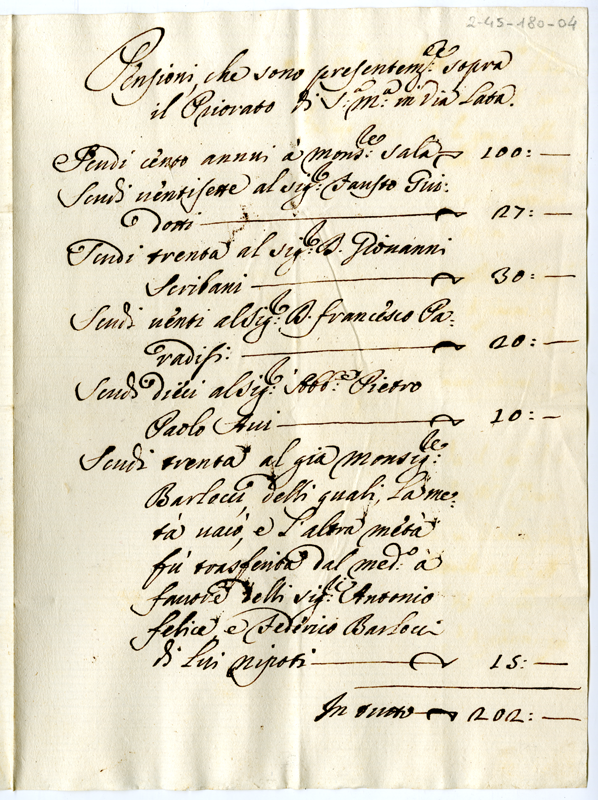 2-45-180-04
Pensioni, che sono presentem.te sopra
il Priorato di S.a M.a in Via Lata.
Scudi cento annui à mons.re Sala 100: —
Scudi uentisette al sig.re Fausto Gui:
dotti 27: —
Scudi trenta al sig.re D. Giovanni
Scribani 30: —
Scudi uenti al sig.re D. Francesco Pa:
radisi: 20: —
Scudi dieci al sig.re Abb.e Pietro
Paolo Aui 10: —
Scudi trenta al già Monsig.re
Barlocci delli quali, la me:
tà uacò, e l'altra metà
fù trasferita dal med.o à
fauore delli sig.ri Antonio
Felice, e Federico Barlocci
di lui nipoti 15: —
In tutto 202: —